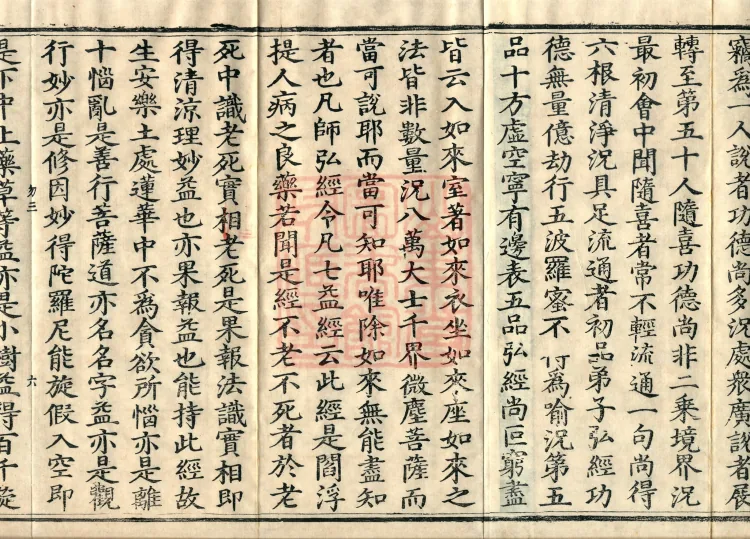 竊為一人說者功德尚多況處衆廣說者展
轉至第五十人隨喜功德尚非二乗境界況
最初會中聞隨喜者常不輕流通一句尚得
六根清淨況具足流通者初品弟子弘經功
德無量億劫行五波羅蜜不可為喻況第五
品十方虛空寧有邊表五品弘經尚叵窮盡
皆云入如來室著如來衣坐如來座如來之
法皆非數量況八萬大士千界微塵菩薩而
當可說耶而當可知耶唯除如來無能盡知
者也凡師弘經今凡七益經云此經是閻浮
提人病之良藥若聞是經不老不死者於老
死中識老死實相老死是果報法識實相即
得清涼理妙益也亦果報益也能持此經故
生安樂土處蓮華中不為貪欲所惱亦是離
十惱亂是善行菩薩道亦名名字益亦是觀
行妙亦是修因妙得陀羅尼能旋假入空即
勿三
六
是下中上藥草等益亦是小樹益得百千旋